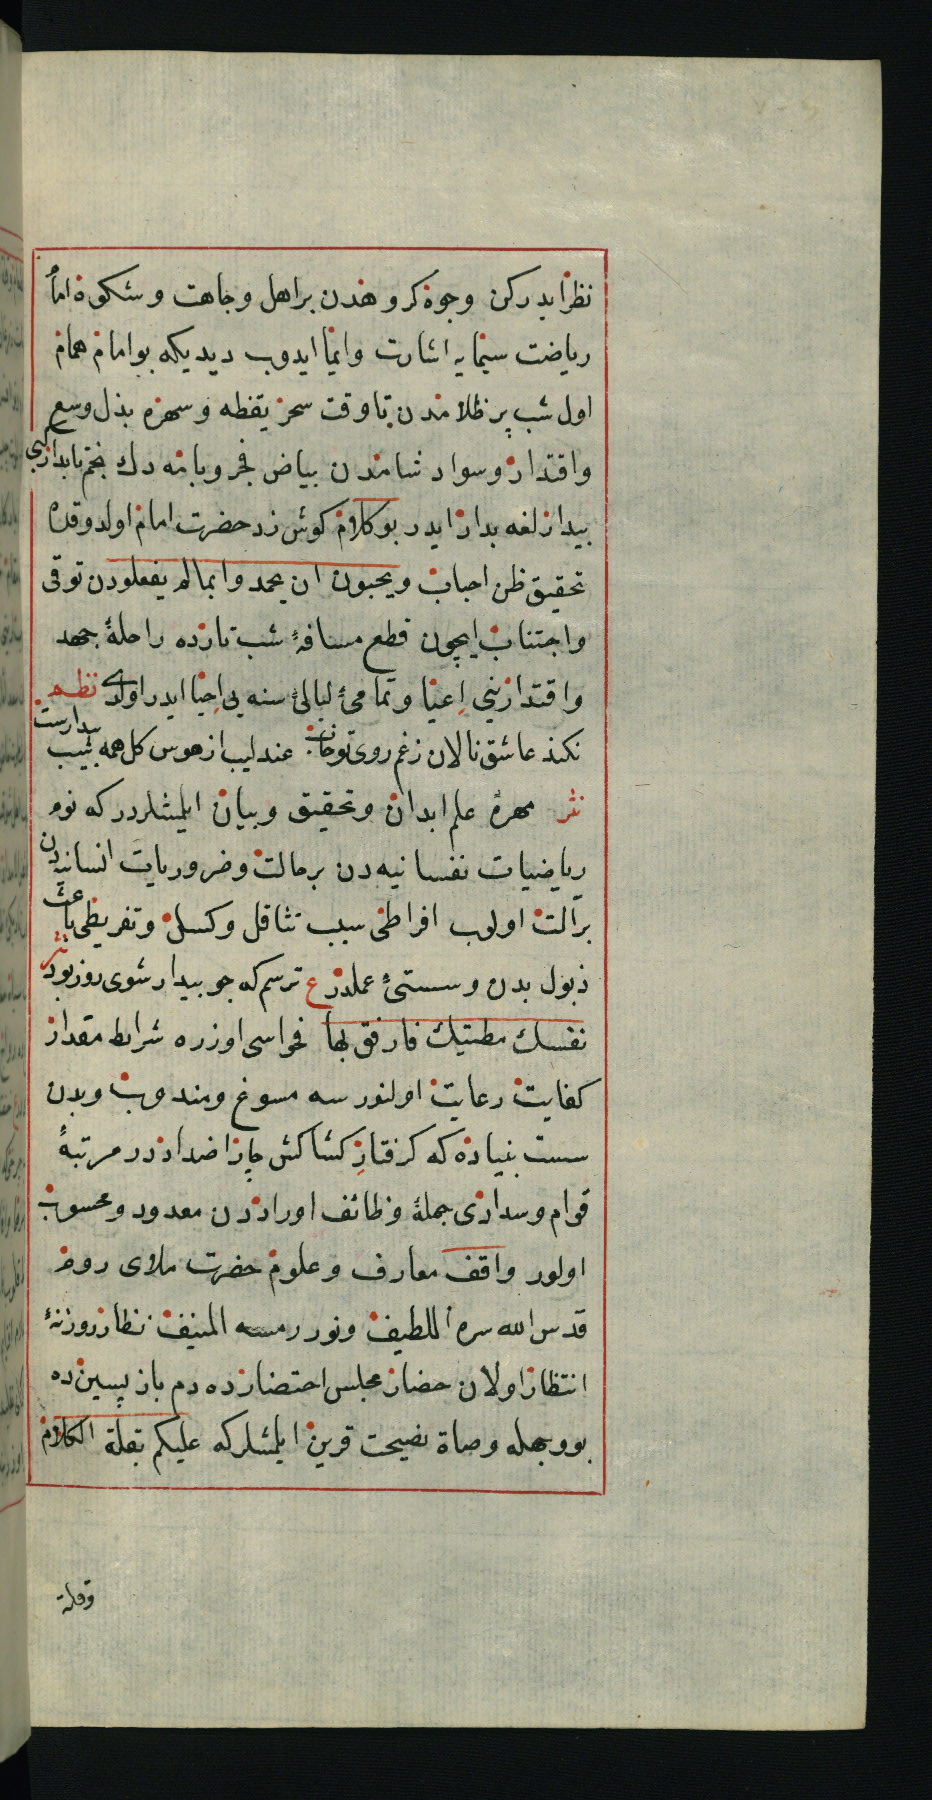 نظر ايدركن وجوه كروهندن بر اهل وجاهت وشكوه امام
رياضت سيمايه اشارت وايما ايدوب ديديكه بو امام همام
اول شب پر ظلامندن تا وقت سحر يقظه وسهره بذل وسع
واقتدار وسواد شامدن بياض فجر وبامه دك نجم پايدار كبى
بيدارلغه بدار ايدر بو كلام كوش زد حضرت امام اولدوقده
تحقيق ظن احباب ويحبون ان يحمدوا بما لم يفعلودن توقى
واجتناب ايچون قطع مسافهٔ شب تارده راحلهٔ جهد
واقتدارينى اعيا وتمامئ ليالئ سنه يى احيا ايدر اولدى نظم
نكند عاشق نالان زغم روى تو خواب عندليب از هوس كل همه شب بيدارست
نثر مهرهٔ علم ابدان وتحقيق وبيان ايلمشلردر كه نوم
رياضيات نفسانيه دن بر حالت وضروريات انسانيه دن
بر آلت اولوب افراطى سبب تثاقل وكسل وتفريطى باعث
ذبول بدن وسستئ عملدر ع ترسم كه چو بيدار شوى روز بود نثر
نفسك مطيتك فارفق بها فحواسى اوزره شرايط مقدار
كفايت رعايت اولنورسه مسوغ ومندوب وبدن
سست بنياده كه كرفتار كشاكش چار اضداددر مرتبهٔ
قوام وسدادى جملهٔ وظائف اوراددن معدود ومحسوب
اولور واقف معارف وعلوم حضرت ملاى روم
قدس الله سره اللطيف ونور رمسه المنيف نظار روزنهٔ
انتظار اولان حضار مجلس احتضارده دم باز پسين ده
بو وجهله وصاة نصيحت قرين ايلمشلر كه عليكم بقلة الكلام
وقلة